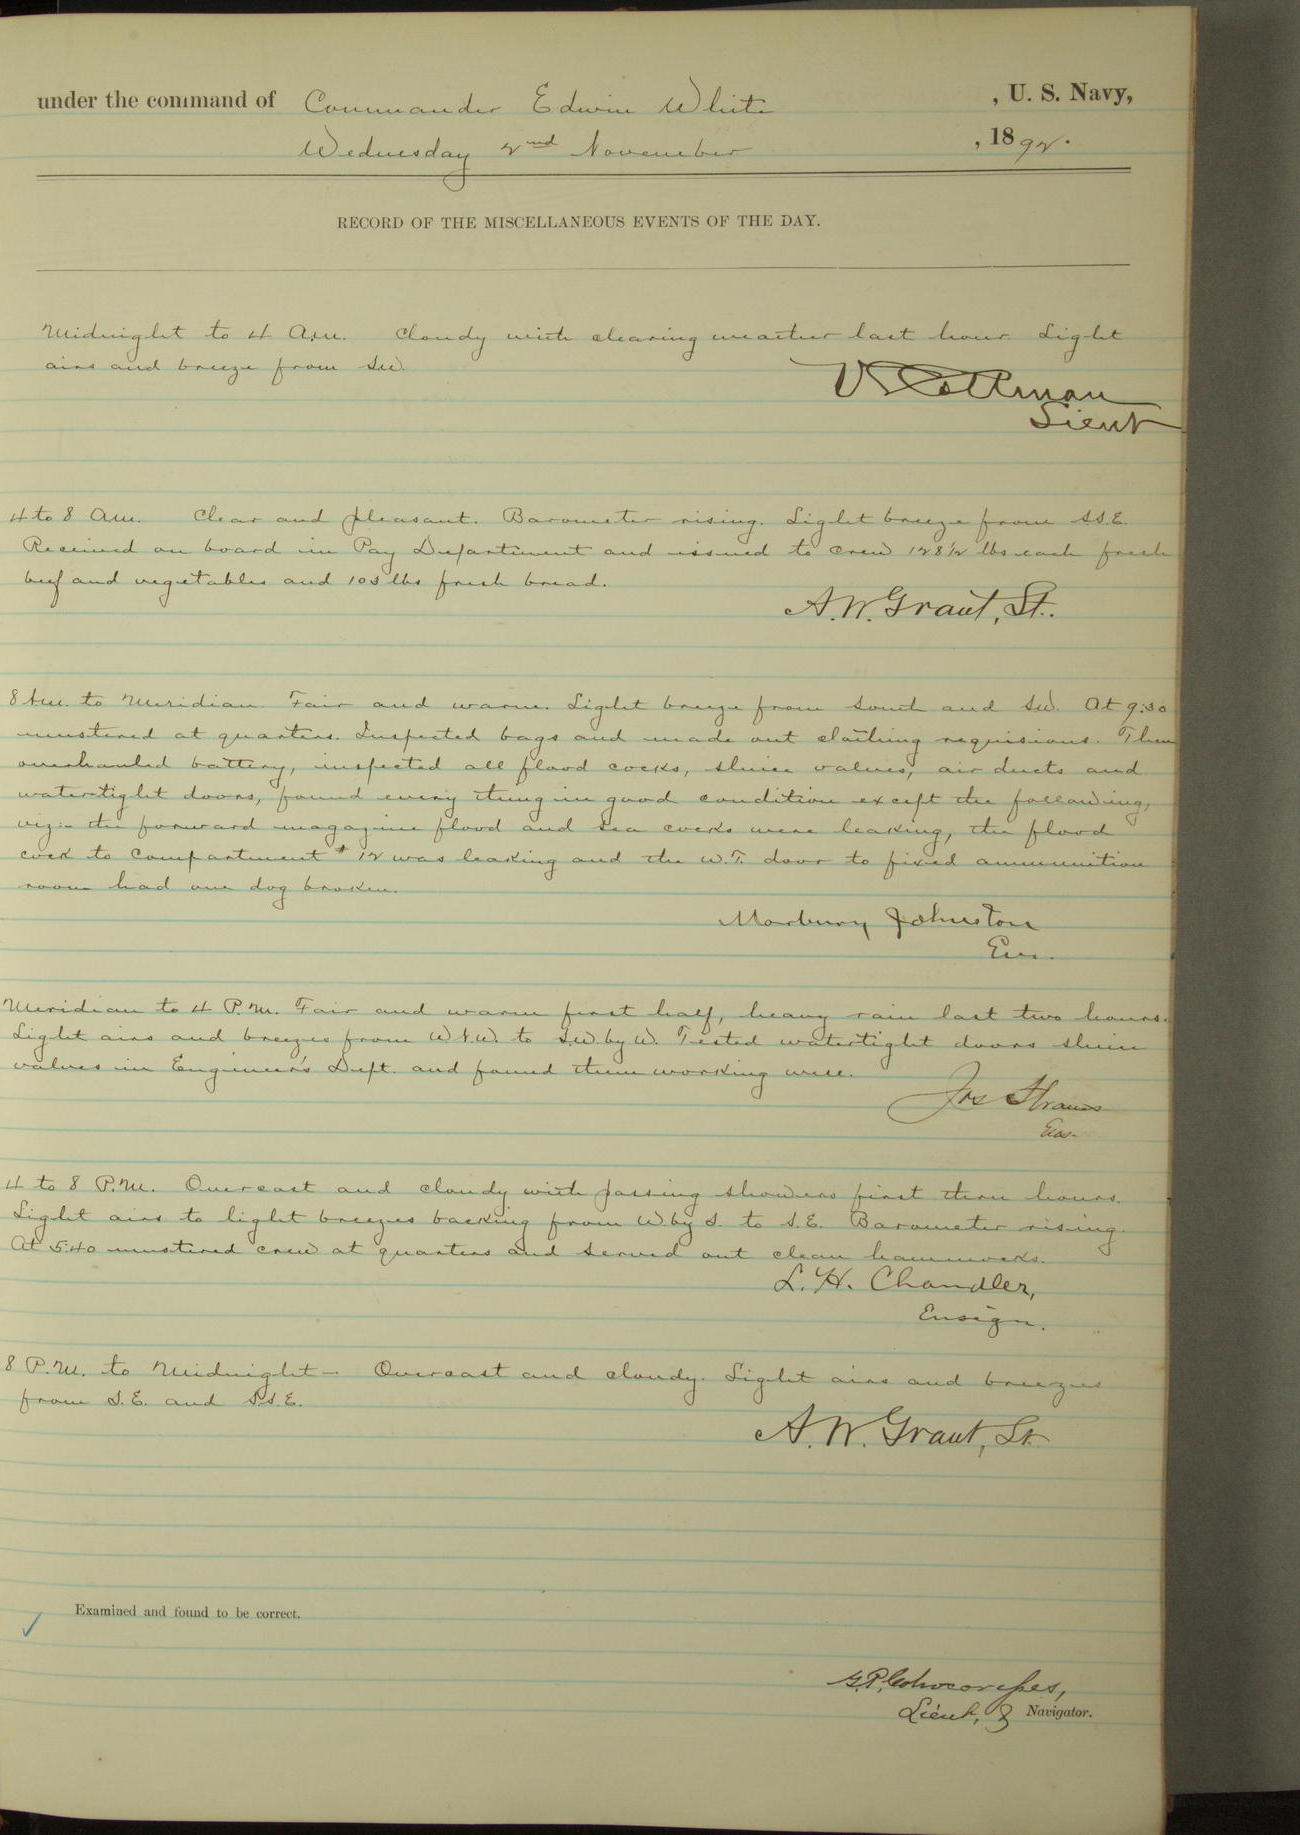 under the command of Commander Edwin White , U. S. Navy,
Wednesday 2nd November , 1892.
RECORD OF THE MISCELLANEOUS EVENTS OF THE DAY.
Midnight to 4 A.m. Cloudy with clearing weather last hour. Light
airs and breeze from SW.
Lieut
4 to 8 A.m. Clear and pleasant. Barometer rising. Light breeze from S.S.E.
Received on board in Pay Department and issued to crew 128½ lbs each fresh
beef and vegetables and 103 lbs fresh bread.
A.W. Grant, Lt.
8 A.m. to Meridian Fair and warm. Light breeze from South and SW. At 9:30
mustered at quarters. Inspected bags and made out clothing requisions. Then
overhauled battery, inspected all flood cocks, sluice valves, air ducts and
watertight doors, found every thing in good condition except the following,
viz:- the forward magazine flood and sea cocks were leaking, the flood
cock to Compartment # 12 was leaking and the W.T. door to fixed ammunition
room had one dog broken.
Marbury Johnston
Ens.
Meridian to 4 P.M. Fair and warm first half, heavy rain last two hours.
Light airs and breezes from W.N.W. to S.W. by W. Tested watertight doors sluice
valves in Engineer's Dept. and found them working well.
Jos Strauss
Ens.
4 to 8 P.M. Overcast and cloudy with passing showers first three hours.
Light airs to light breezes backing from W. by S. to S.E. Barometer rising.
At 5:40 mustered crew at quarters and served out clean hammocks.
L. H. Chandler,
Ensign.
8 P.M. to Midnight - Overcast and cloudy. Light airs and breezes
from S.E. and S.S.E.
A. W. Grant, Lt.
Examined and found to be correct.
G.P. Colvocoresses,
Lieut, & Navigator.